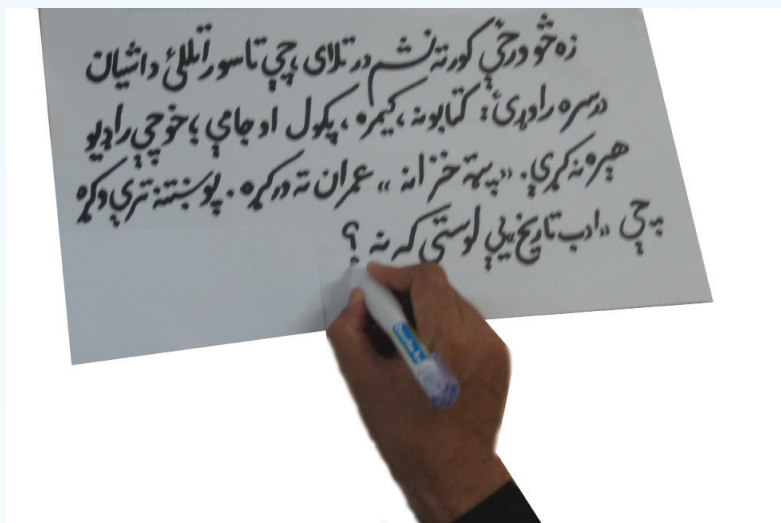 زه څو ورځې کورته نشم درتلای، چې تاسو راتللئ دا شيان
درسره راوړئ: کتابونه، کيمره، پکول او جامې؛ خو چې راډيو
هېره نه کړې. «پټه خزانه» عمران ته ورکړه. پوښتنه ترې وکړه
چې «ادب تاريخ» يې لوستی که نه؟